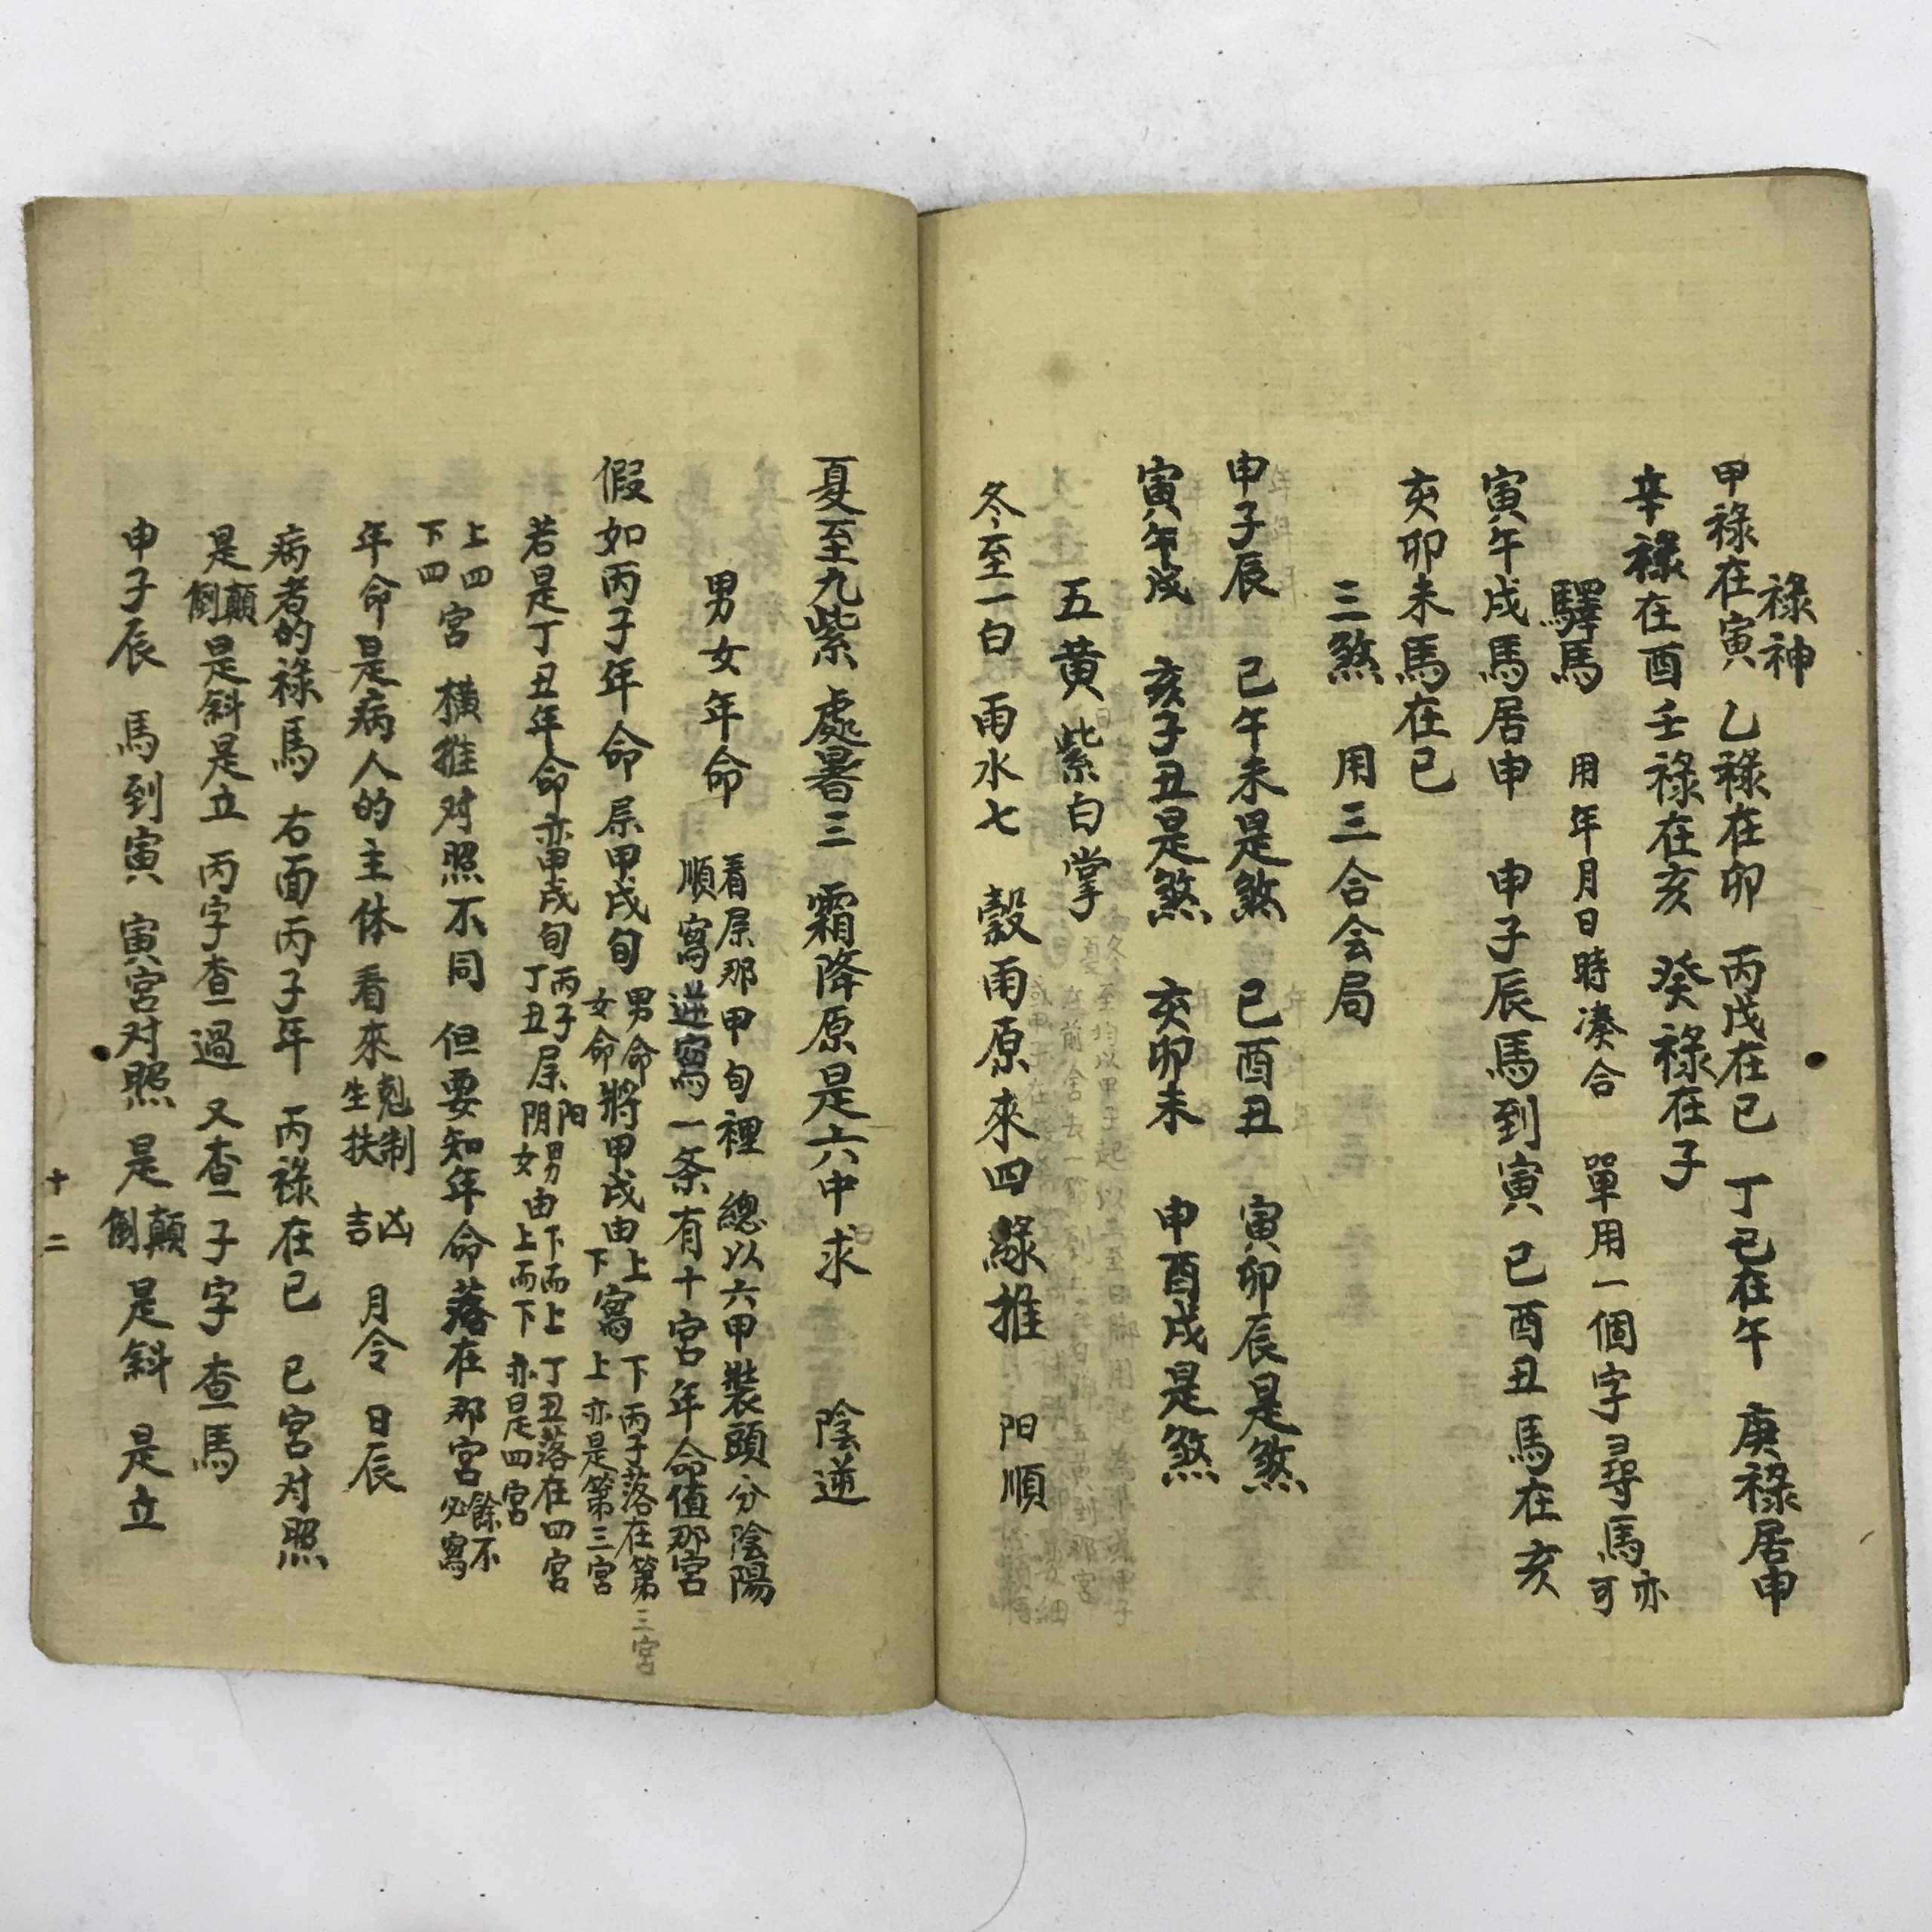 祿神
甲祿在寅 乙祿在卯 丙戊在巳 丁己在午 庚祿居申
辛祿在酉 壬祿在亥 癸祿在子
驛馬 用年月日時湊合 單用一個字尋馬亦可
寅午戌馬居申 申子辰馬到寅 巳酉丑馬在亥
亥卯未馬在巳
三煞 用三合会局
申子辰 巳午未是煞 巳酉丑 寅卯辰是煞
寅午戌 亥子丑是煞 亥卯未 申酉戌是煞
五黄紫白掌
冬至一白 雨水七 穀雨原來四綠推 阳順
夏至九紫 處暑三 霜降原是六中求 陰逆
男女年命 看屌那甲旬裡 總以六甲裝頭分陰陽
順寫逆寫一条有十宮年命值那宮
假如丙子年命屌甲戌旬 男命女命將甲戌由上下寫下上 丙子落在第三宮亦是第三宮
若是丁丑年命亦甲戌旬 丙子丁丑屌阳男阴女由下而上上而下 丁丑落在四宮亦是四宮
上四下四宮 橫推对照不同 但要知年命落在那宮餘不必寫
年命是病人的主体 看來尅制生扶 凶吉 月令 日辰
病者的祿馬 右面丙子年 丙祿在巳 巳宮对照
是顛倒是斜是立 丙字查過 又查子字查馬
申子辰 馬到寅 寅宮对照 是顛倒 是斜 是立
十二